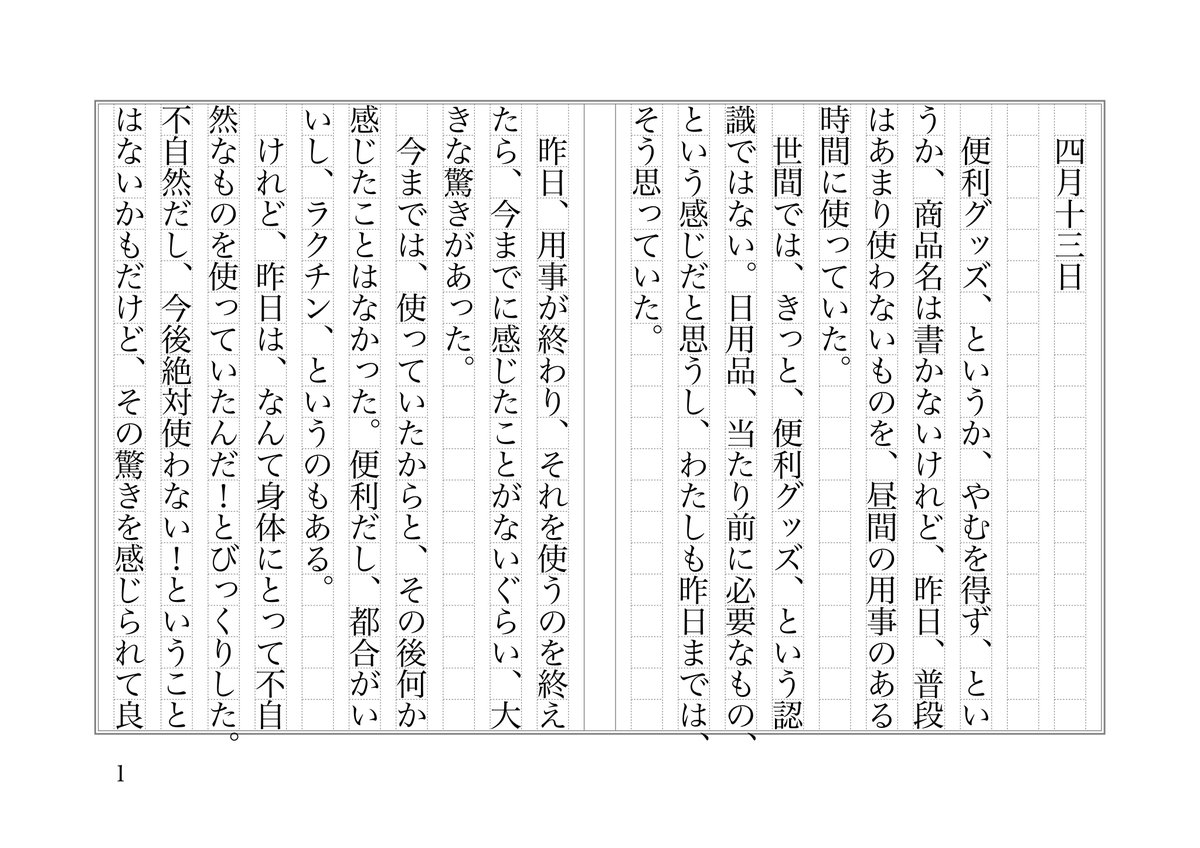 四月十三日
　便利グッズ、というか、やむを得ず、とい
うか、商品名は書かないけれど、昨日、普段
はあまり使わないものを、昼間の用事のある
時間に使っていた。
　世間では、きっと、便利グッズ、という認
識ではない。日用品、当たり前に必要なもの、
という感じだと思うし、わたしも昨日までは、
そう思っていた。
　昨日、用事が終わり、それを使うのを終え
たら、今までに感じたことがないぐらい、大
きな驚きがあった。
　今までは、使っていたからと、その後何か
感じたことはなかった。便利だし、都合がい
いし、ラクチン、というのもある。
　けれど、昨日は、なんて身体にとって不自
然なものを使っていたんだ！とびっくりした。
不自然だし、今後絶対使わない！ということ
はないかもだけど、その驚きを感じられて良
1